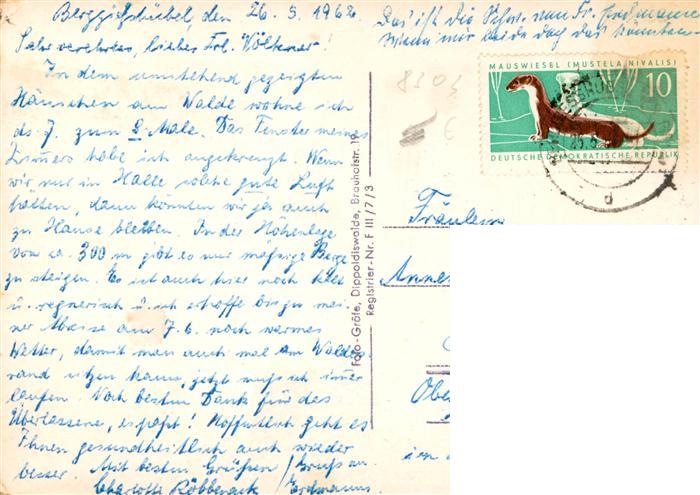 Berggießhübel, den 26. 5. 1962.
Sehr verehrtes, liebes Frl. Völkner!
In dem umstehend gezeigten
Häuschen am Walde wohne ich
ds. J. zum 2. Male. Das Fenster meines
Zimmers habe ich angekreuzt. Wenn
wir nur in Halle solche gute Luft
hätten, dann könnten wir ja auch
zu Hause bleiben. In der Höhenlage
von ca. 300 m gibt es nur mäßige Berge
zu steigen. Es ist auch hier noch kalt
u. regnerisch u. ich erhoffe bis zu mei-
ner Abreise am 7. 6. noch warmes
Wetter, damit man auch mal am Waldes-
rand sitzen kann, jetzt muß ich immer
laufen. Noch besten Dank für das
Überlassene, es paßt! Hoffentlich geht es
Ihnen gesundheitlich auch wieder
besser. Mit besten Grüßen / Gruß an
Charlotte Erdmanns.
Das ist die Schw. von Fr. Erdmann
Foto-Gräfe, Dippoldiswalde, Brauhofstr. 19
Registrier-Nr. F III/7/3
8303
MAUSWIESEL (MUSTELA NIVALIS)
10
DEUTSCHE DEMOKRATISCHE REPUBLIK
d
Fräulein
Anne
Obe
in